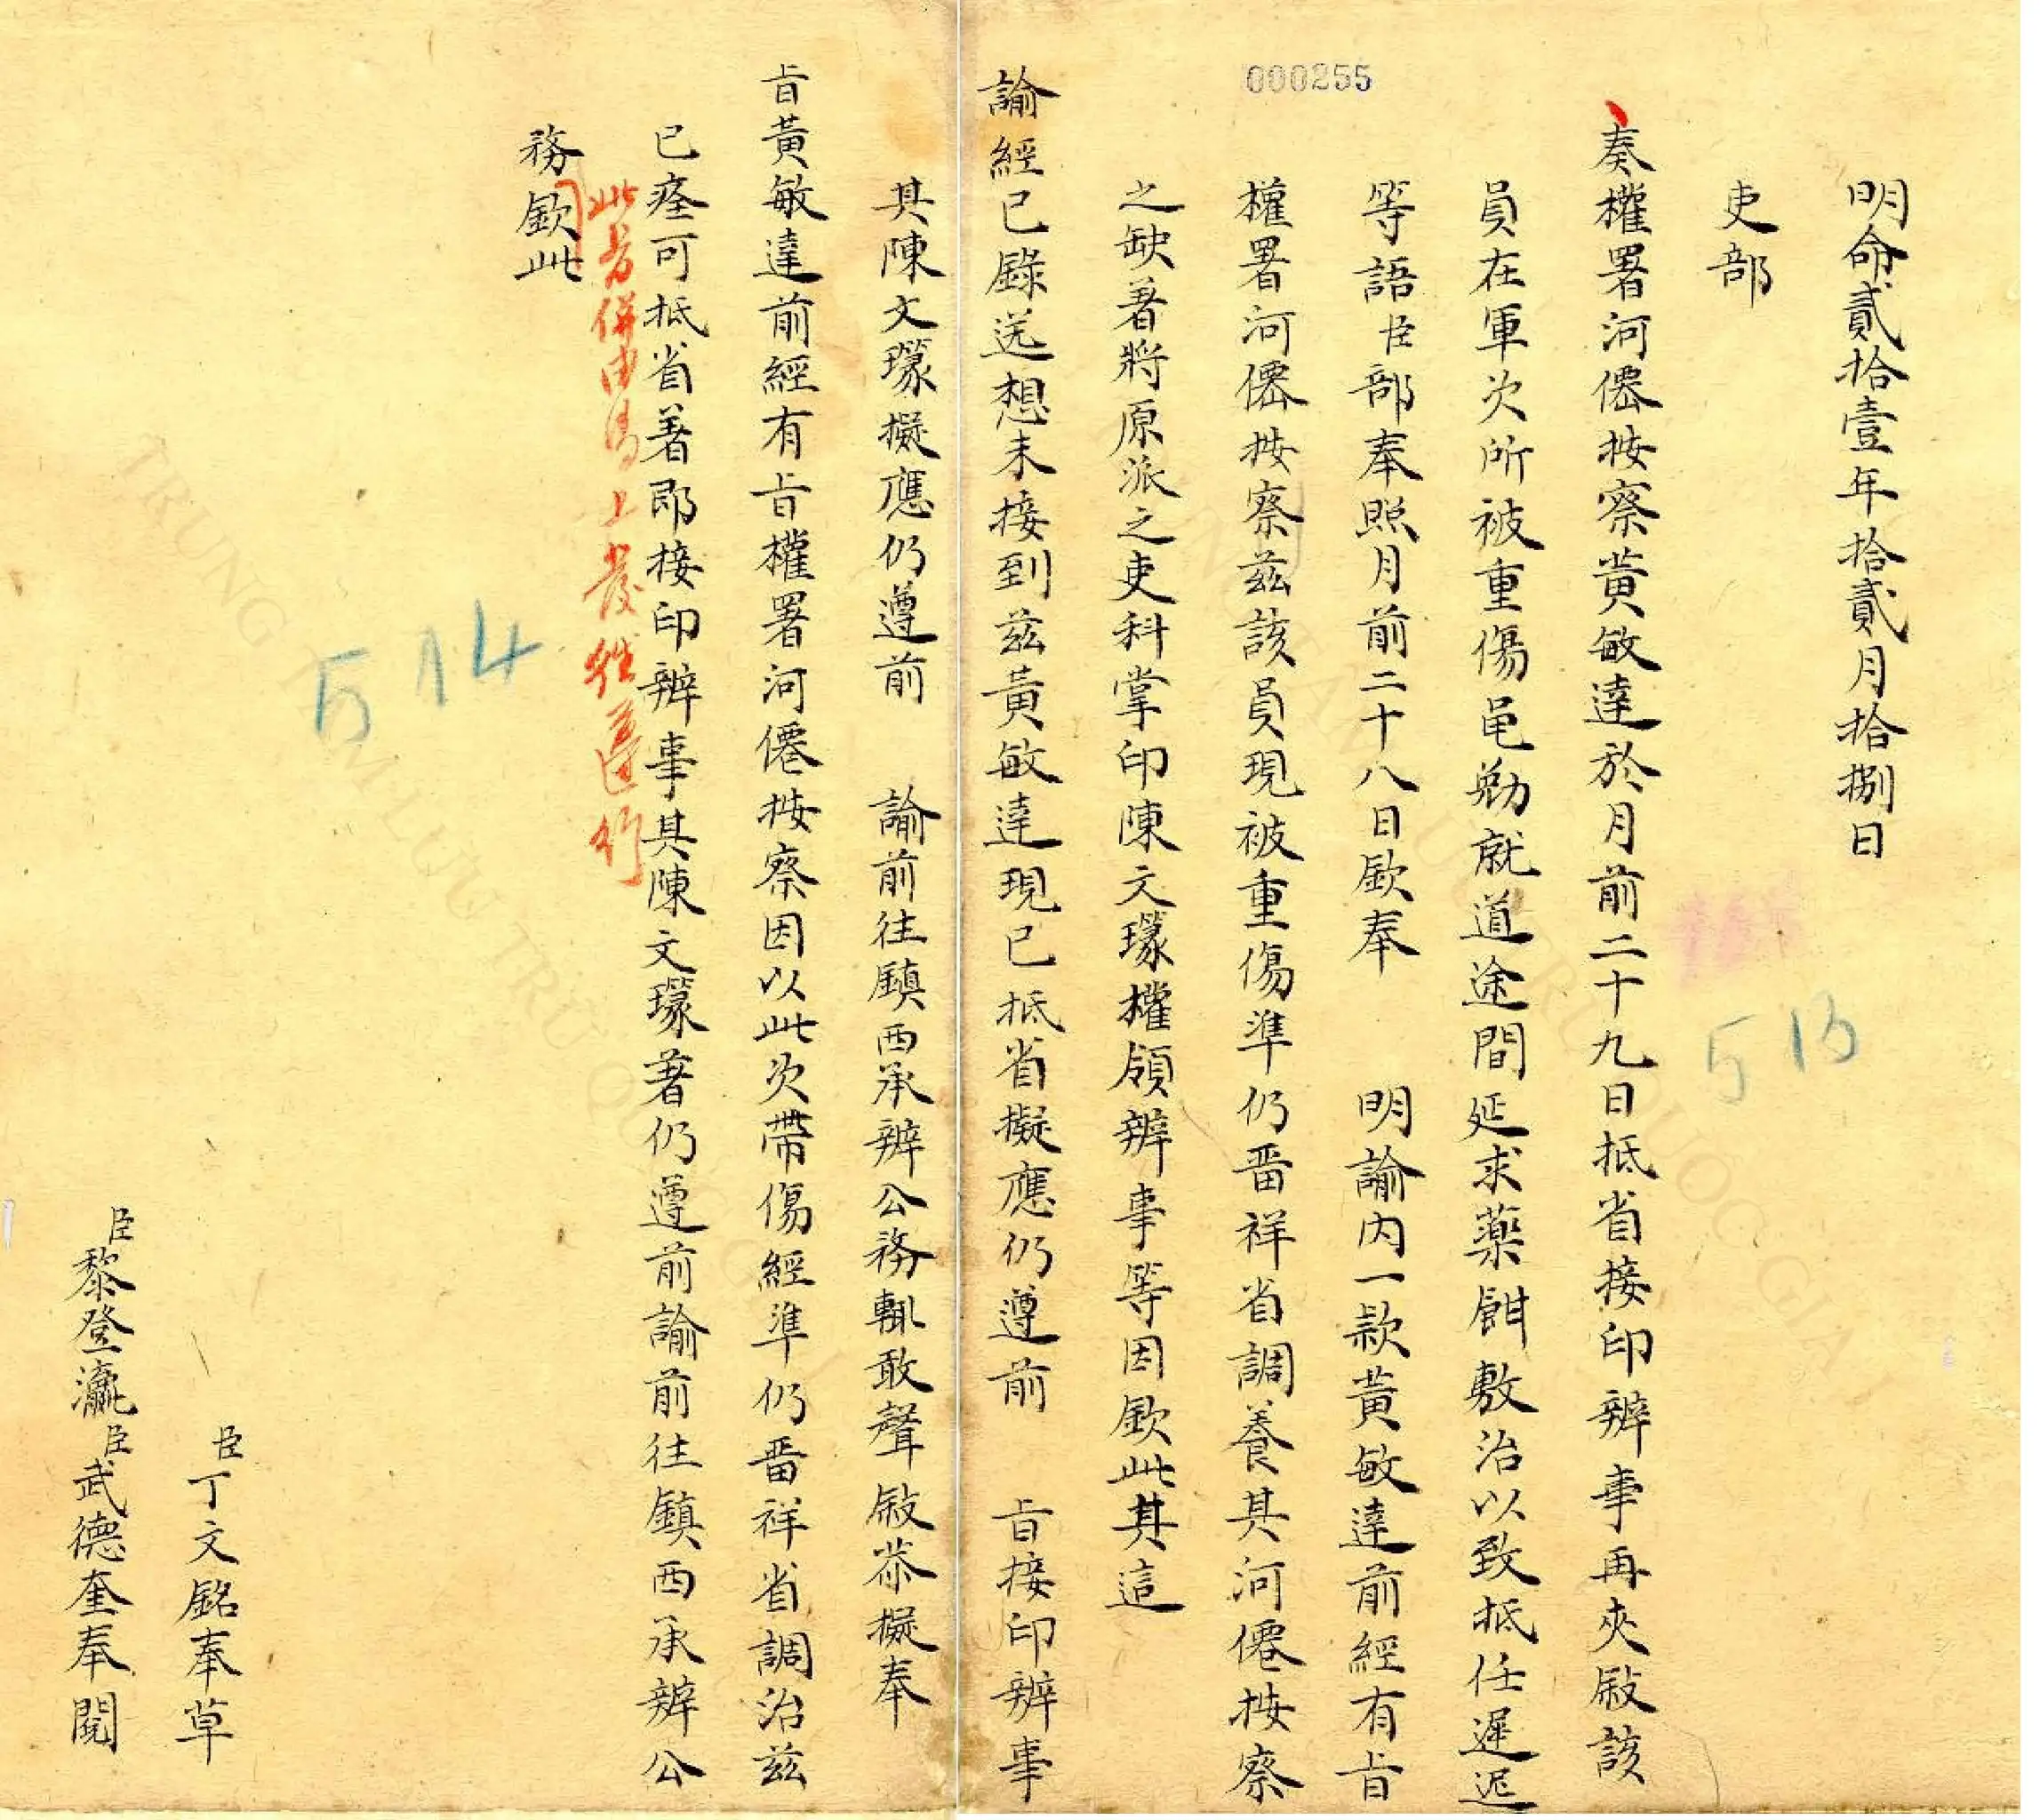 000255
明命貳拾壹年拾貳月拾捌日
吏部
奏權署河僊按察黄敏達於月前二十九日抵省接印辨事再夾敍該
員在軍次所被重傷黽勉就道途間延求藥餌敷治以致抵任遲迟
等語臣部奉照月前二十八日欽奉 明諭内一款黄敏達前經有旨
權署河僊按察兹該員現被重傷準仍畱祥省調養其河僊按察
之缺著將原派之吏科掌印陳文㻛權領辨事等因欽此其這
諭經已錄送想未接到兹黄敏達現已抵省擬應仍遵前 旨接印辨事
其陳文㻛擬應仍遵前 諭前往鎮西承辨公務輒敢聲敍恭擬奉
旨黄敏達前經有旨權署河僊按察因以此次帶傷經準仍畱祥省調治兹
已痊可抵省著即接印辨事其陳文㻛著仍遵前諭前往鎮西承辨公
務欽此
此另併由馬上發往遵行
臣丁文銘奉草
臣黎登瀛臣武德奎奉閱
513
514
TRUNG TÂM LƯU TRỮ QUỐC GIA I